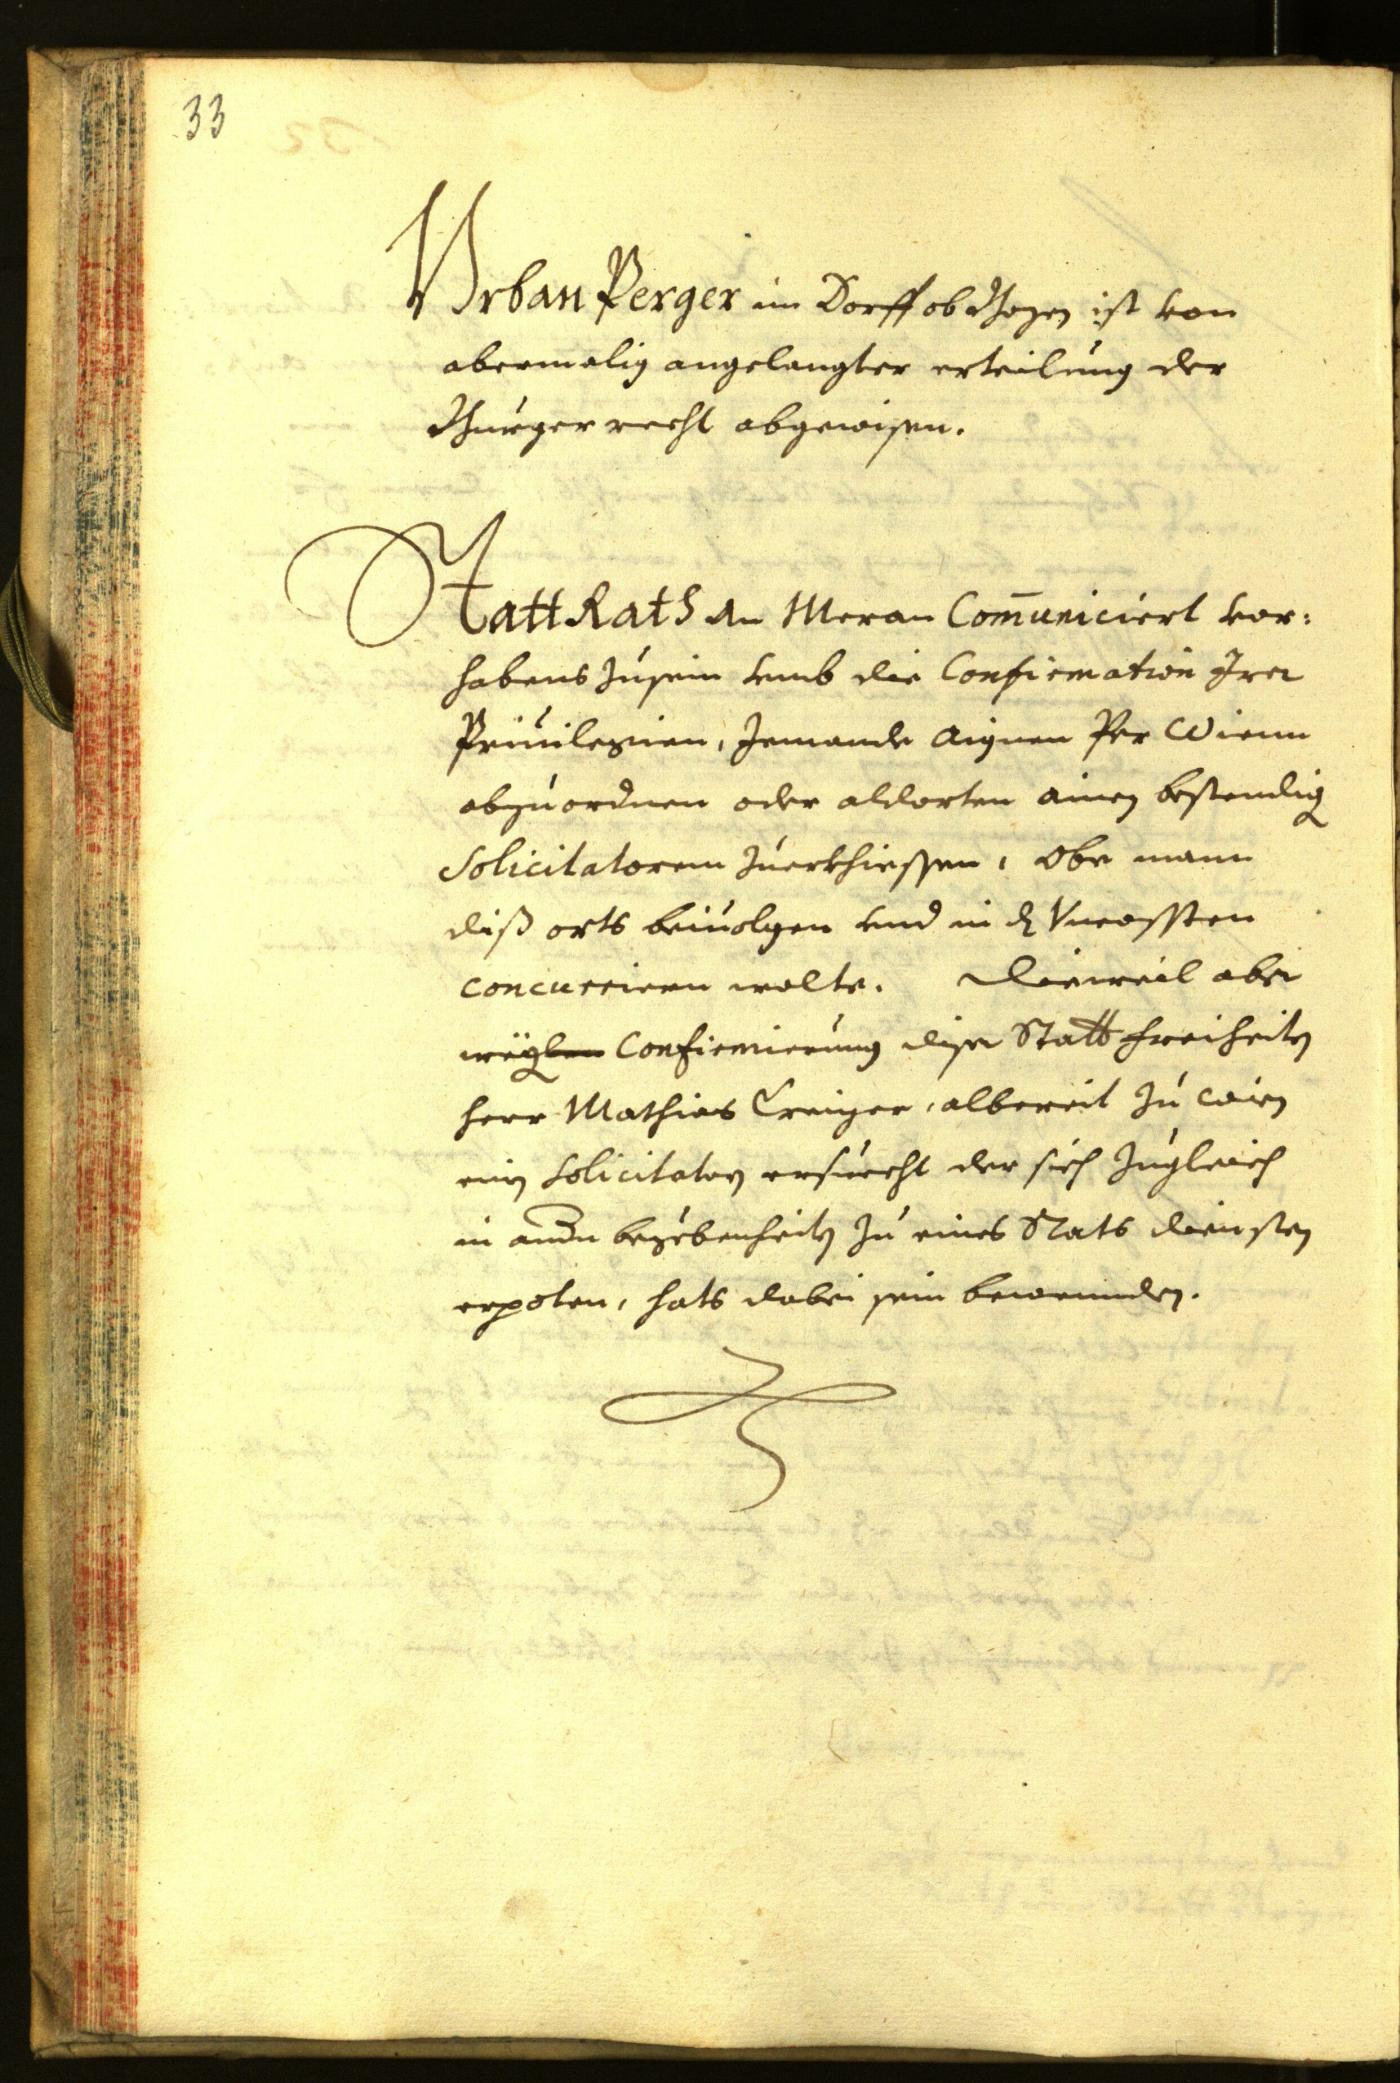 33
Vrban Perger im Dorff ob Bozen ist von
abermalig angelangter erteilung der
Burgerrecht abgewisen.
Statt Rath An Meran Communiciert vor:
habens zusein vmb die Confirmation Irer
Priuilegien, Jemands Aignen Per Wienn
abzuordnen oder aldorten ainen bestendig
Solicitatorem zuerkhiessen, Obe mann
diß orts beiuolgen vnd in d Vncossten
concurriern wolte. Dieweil aber
Confirmierung diser Statt freiheiten
herr Mathias Creizer, albereit zu Wien
ein Solicitatorn ersuecht der sich zugleich
in andern begebenheiten zu eines Rats diensten
erpoten, hats dabei sein bewennden.